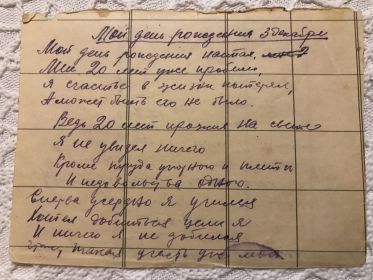 Мой день рождения 3 декабря
Мой день рождения настал,
Мне 20 лет уже пробило,
Я счастье в жизни потерял,
А может быть его не было.
Ведь 20 лет прожил на свете
Я не увидел ничего
Кроме труда и плети
И недовольства одного.
Сперва усердно я учился
Хотел добиться цели я
И ничего я не добился
такая участь